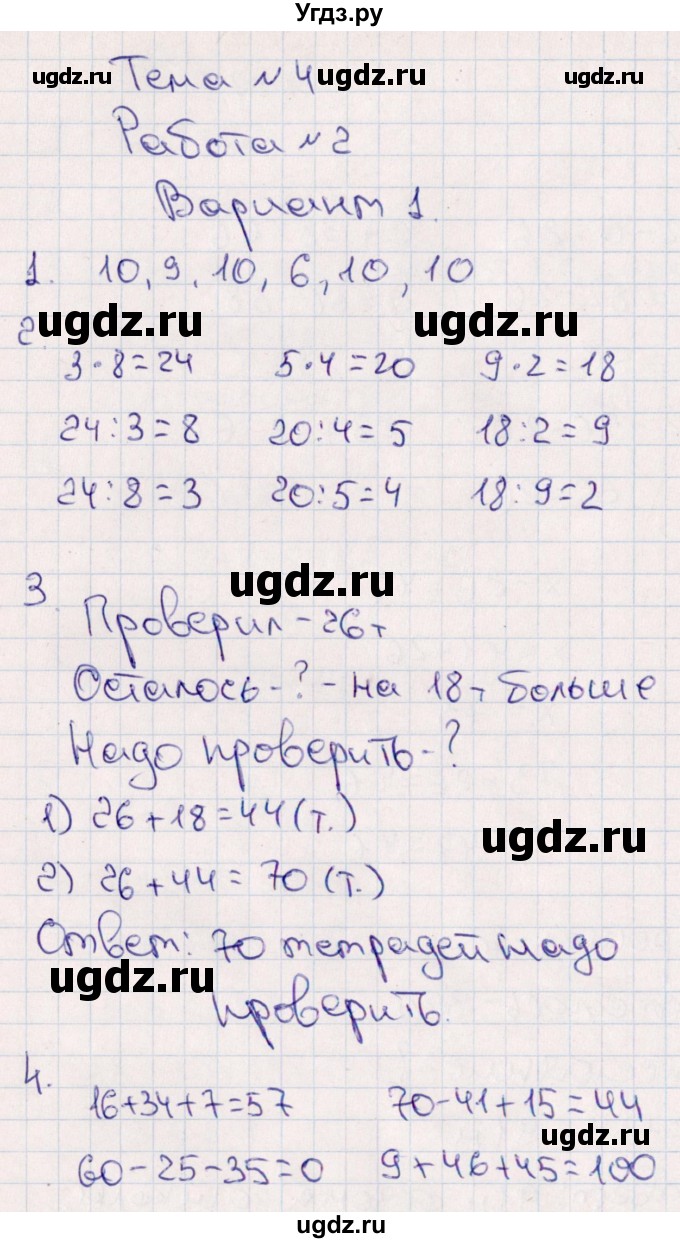 Угдз.ру
Тема №4
Работа №2
Вариант 1.
1. 10, 9, 10, 6, 10, 10
2.
3·8=24 5·4=20 9·2=18
24:3=8 20:4=5 18:2=9
24:8=3 20:5=4 18:9=2
3
Проверил - 26т
Осталось - ? - на 18т больше
Надо проверить - ?
1) 26+18=44(т.)
2) 26+44=70(т.)
Ответ: 70 тетрадей надо
проверить.
4.
16+34+7=57 70-41+15=44
60-25-35=0 9+46+45=100
ugdz.ru
ugdz.ru
ugdz.ru
ugdz.ru
ugdz.ru
ugdz.ru
ugdz.ru
ugdz.ru
ugdz.ru
ugdz.ru
ugdz.ru